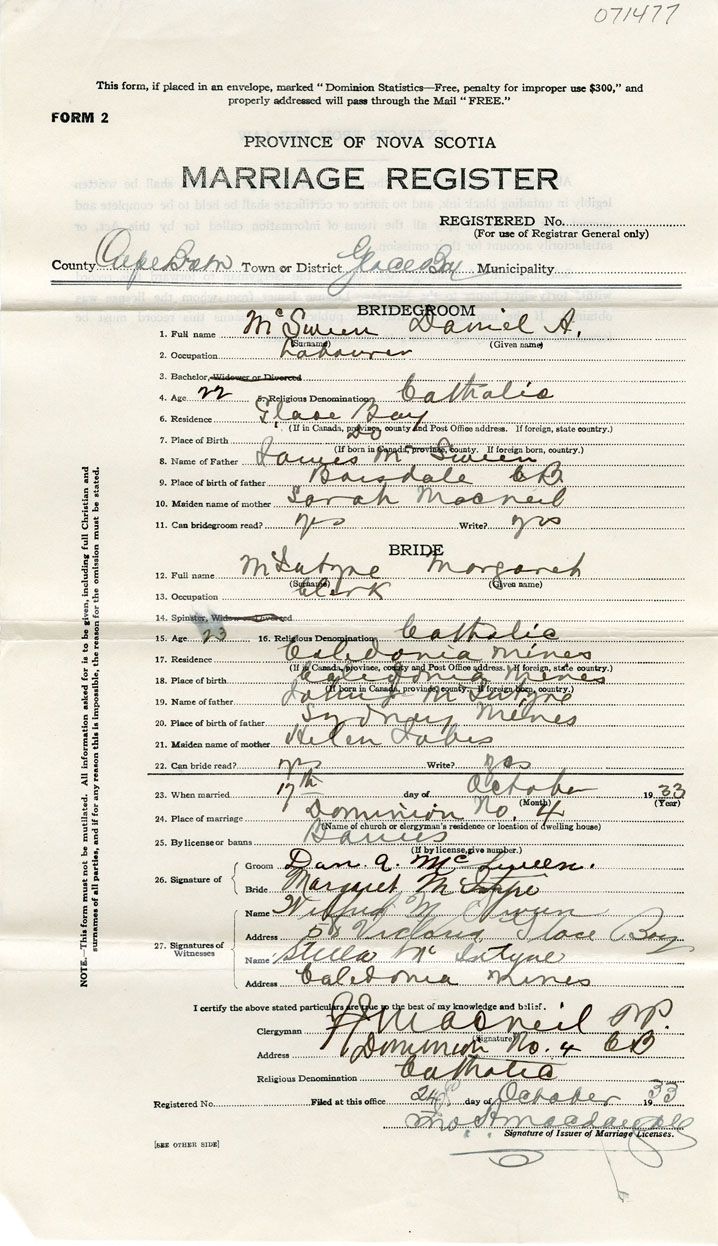 071477
This form, if placed in an envelope, marked "Dominion Statistics—Free, penalty for improper use $300," and
properly addressed will pass through the Mail "FREE."
FORM 2
PROVINCE OF NOVA SCOTIA
MARRIAGE REGISTER
REGISTERED No.
(For use of Registrar General only)
County Cape Breton Town or District Glace Bay Municipality
BRIDEGROOM
1. Full name McSween Daniel A.
(Surname) (Given name)
2. Occupation Labourer
3. Bachelor, Widower or Divorced
4. Age 22 5. Religious Denomination Catholic
6. Residence Glace Bay
(If in Canada, province, county and Post Office address. If foreign, state country.)
7. Place of Birth Do
(If born in Canada, province, county. If foreign born, country.)
8. Name of Father James McSween
9. Place of birth of father Boisdale C.B
10. Maiden name of mother Sarah Macneil
11. Can bridegroom read? yes Write? yes
BRIDE
12. Full name McIntyre Margaret
(Surname) (Given name)
13. Occupation Clerk
14. Spinster, Widow or Divorced
15. Age 23 16. Religious Denomination Catholic
17. Residence Caledonia Mines
(If in Canada, province, county and Post Office address. If foreign, state country.)
18. Place of birth Caledonia Mines
(If born in Canada, province, county. If foreign born, country.)
19. Name of father John J McIntyre
20. Place of birth of father Sydney Mines
21. Maiden name of mother Helen
22. Can bride read? yes Write? yes
23. When married 17th day of October 1933
(Month) (Year)
24. Place of marriage Dominion No. 4
(Name of church or clergyman's residence or location of dwelling house)
25. By license or banns Banns
(If by license, give number.)
26. Signature of
Groom Dan A. McSween.
Bride Margaret McIntyre
27. Signatures of Witnesses
Name Wilfred McSween
Address Glace Bay
Name Stella McIntyre
Address Caledonia Mines
I certify the above stated particulars are true to the best of my knowledge and belief.
Clergyman Macneil P.P.
(Signature)
Address Dominion No. 4 C.B
Religious Denomination Catholic
Registered No. Filed at this office 24 day of October 1933
Signature of Issuer of Marriage Licenses.
[SEE OTHER SIDE]
NOTE.—This form must not be mutilated. All information asked for is to be given, including full Christian and
surnames of all parties, and if for any reason this is impossible, the reason for the omission must be stated.